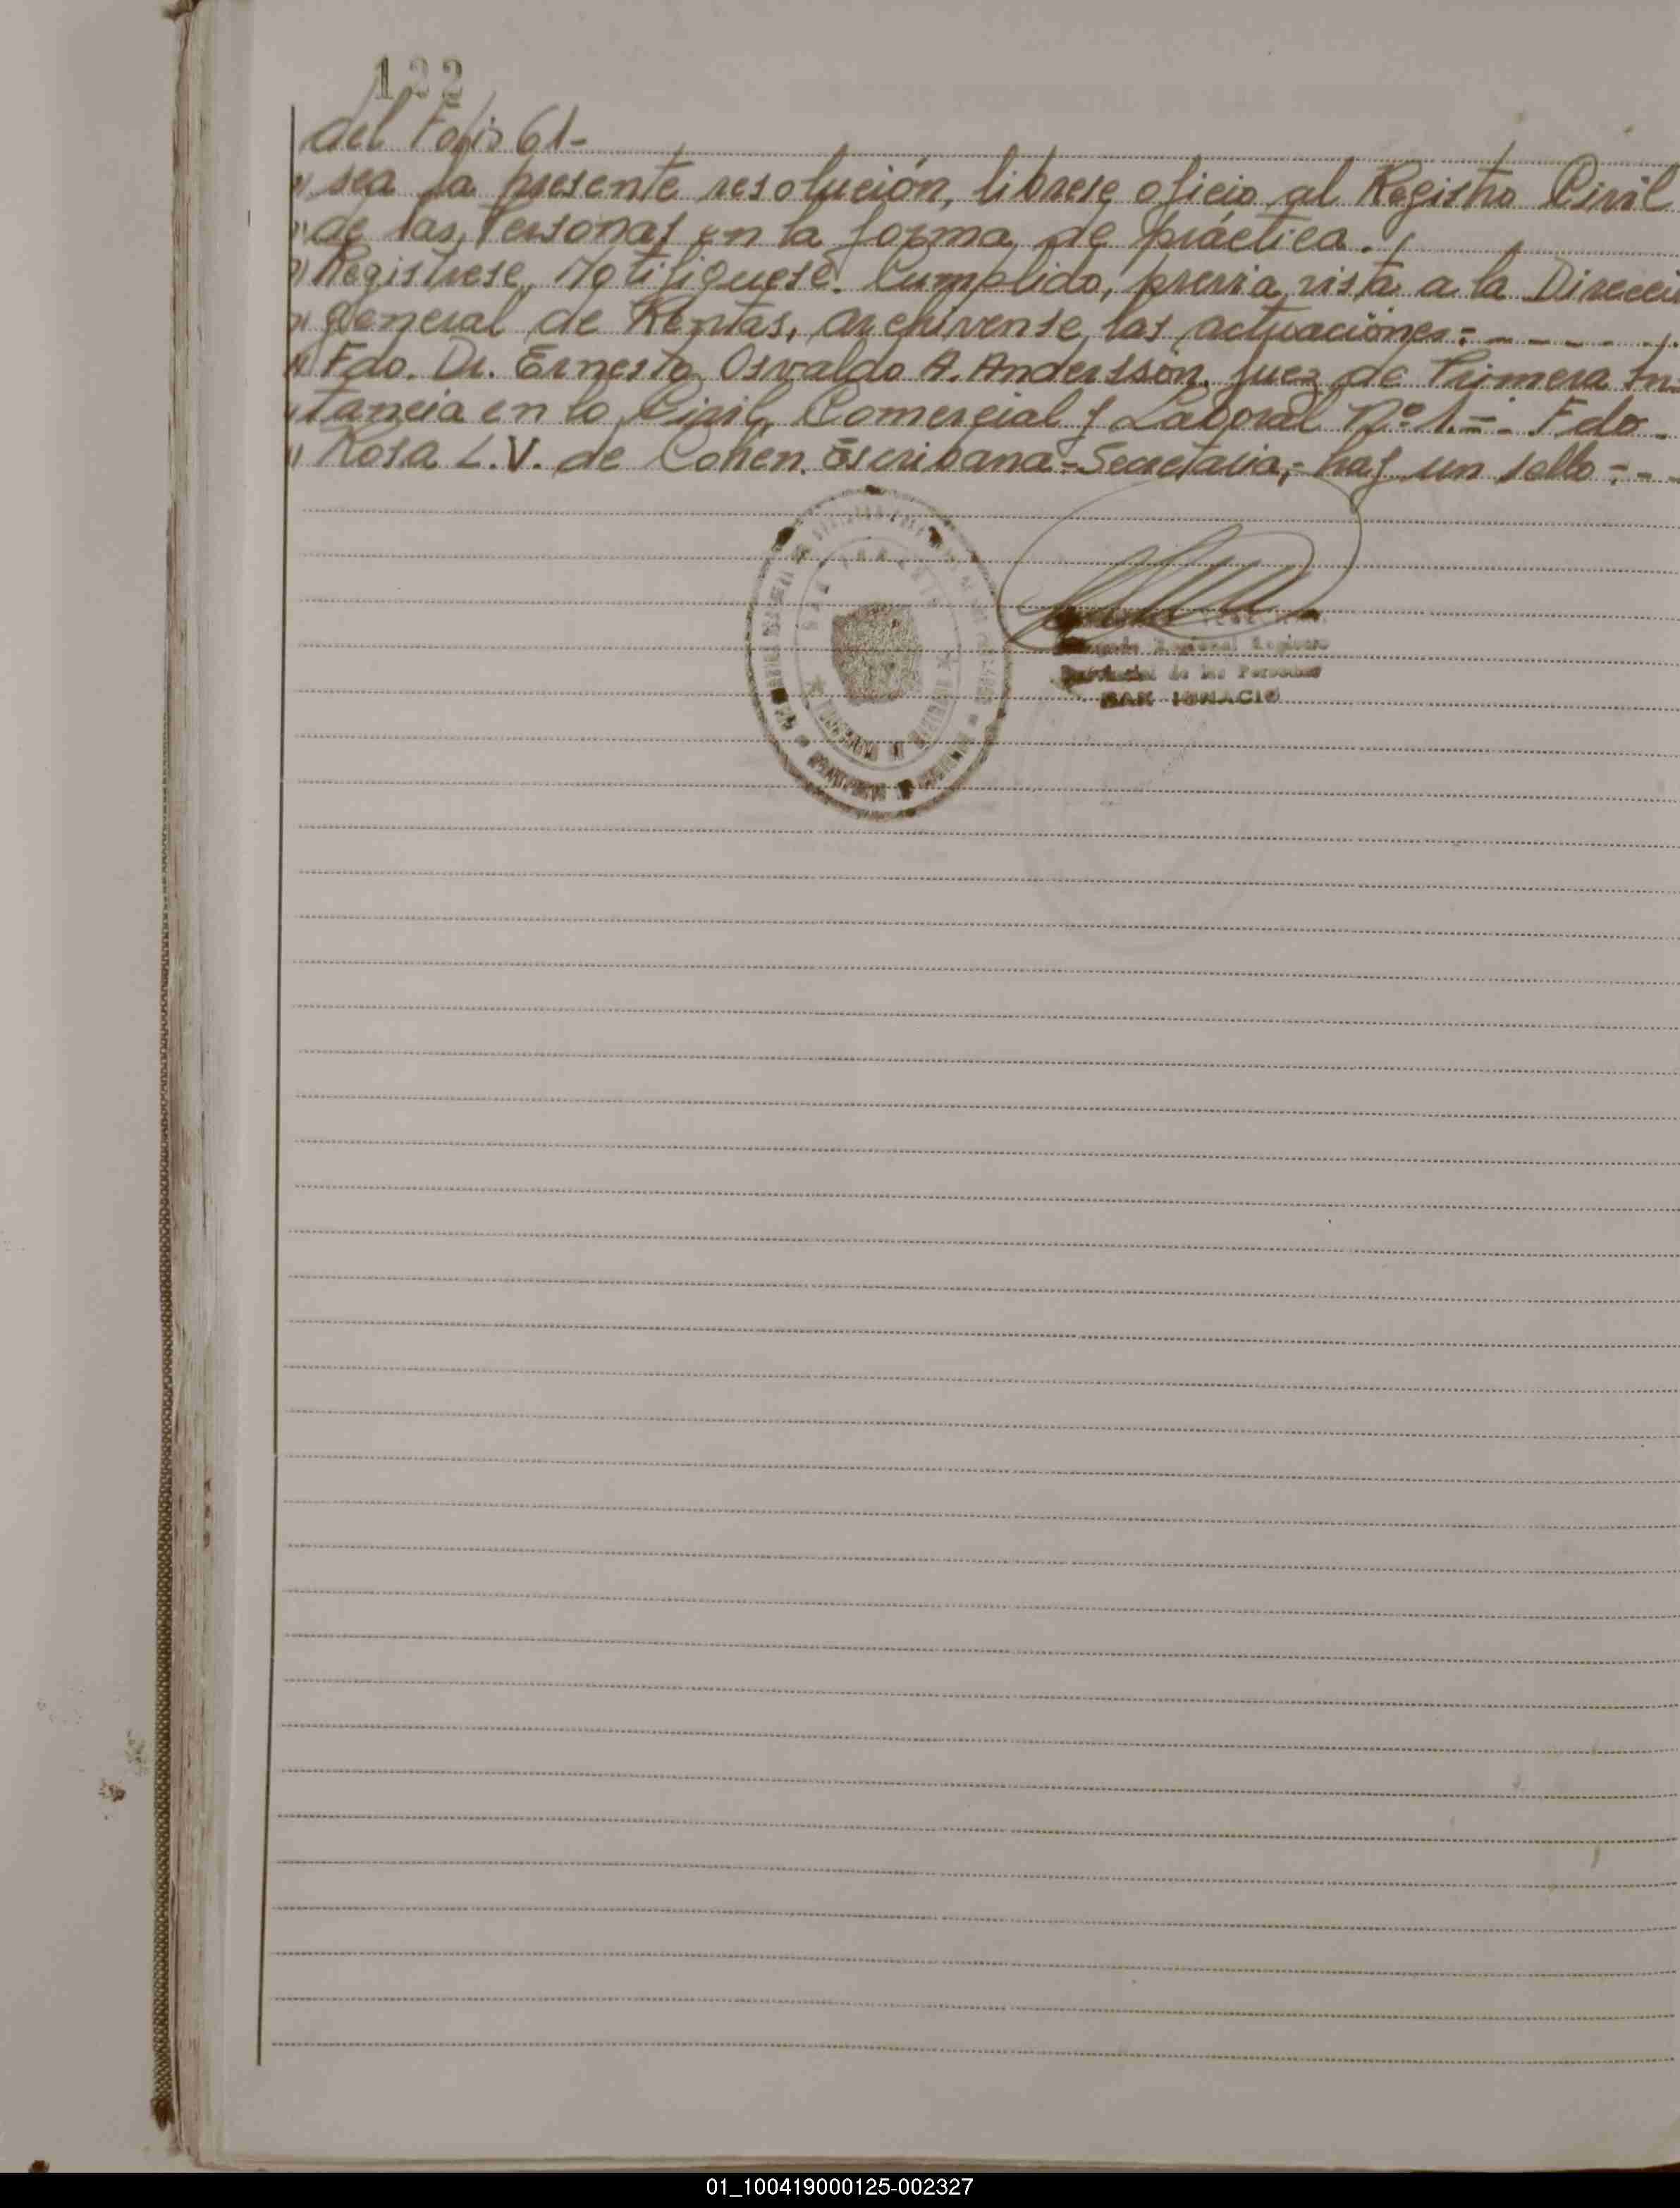 122
del Folio 61-
" sea la presente resolución, librese oficio al Registro Civil
" de las Personas en la forma de práctica.
" Registrese, Notifiquese. Cumplido, previa vista a la Direcci
" general de Rentas, archivense las actuaciones:- - - - - -
" Fdo. Dr. Ernesto Osvaldo A. Andersson, Juez de Primera Ins
" tancia en lo Civil, Comercial y Laboral Nº 1.-. Fdo.
" Rosa L.V. de Cohen. Escribana-Secretaria,- hay un sello:- -
Regional Registro
Provincial de las Personas
SAN IGNACIO
01_100419000125-002327